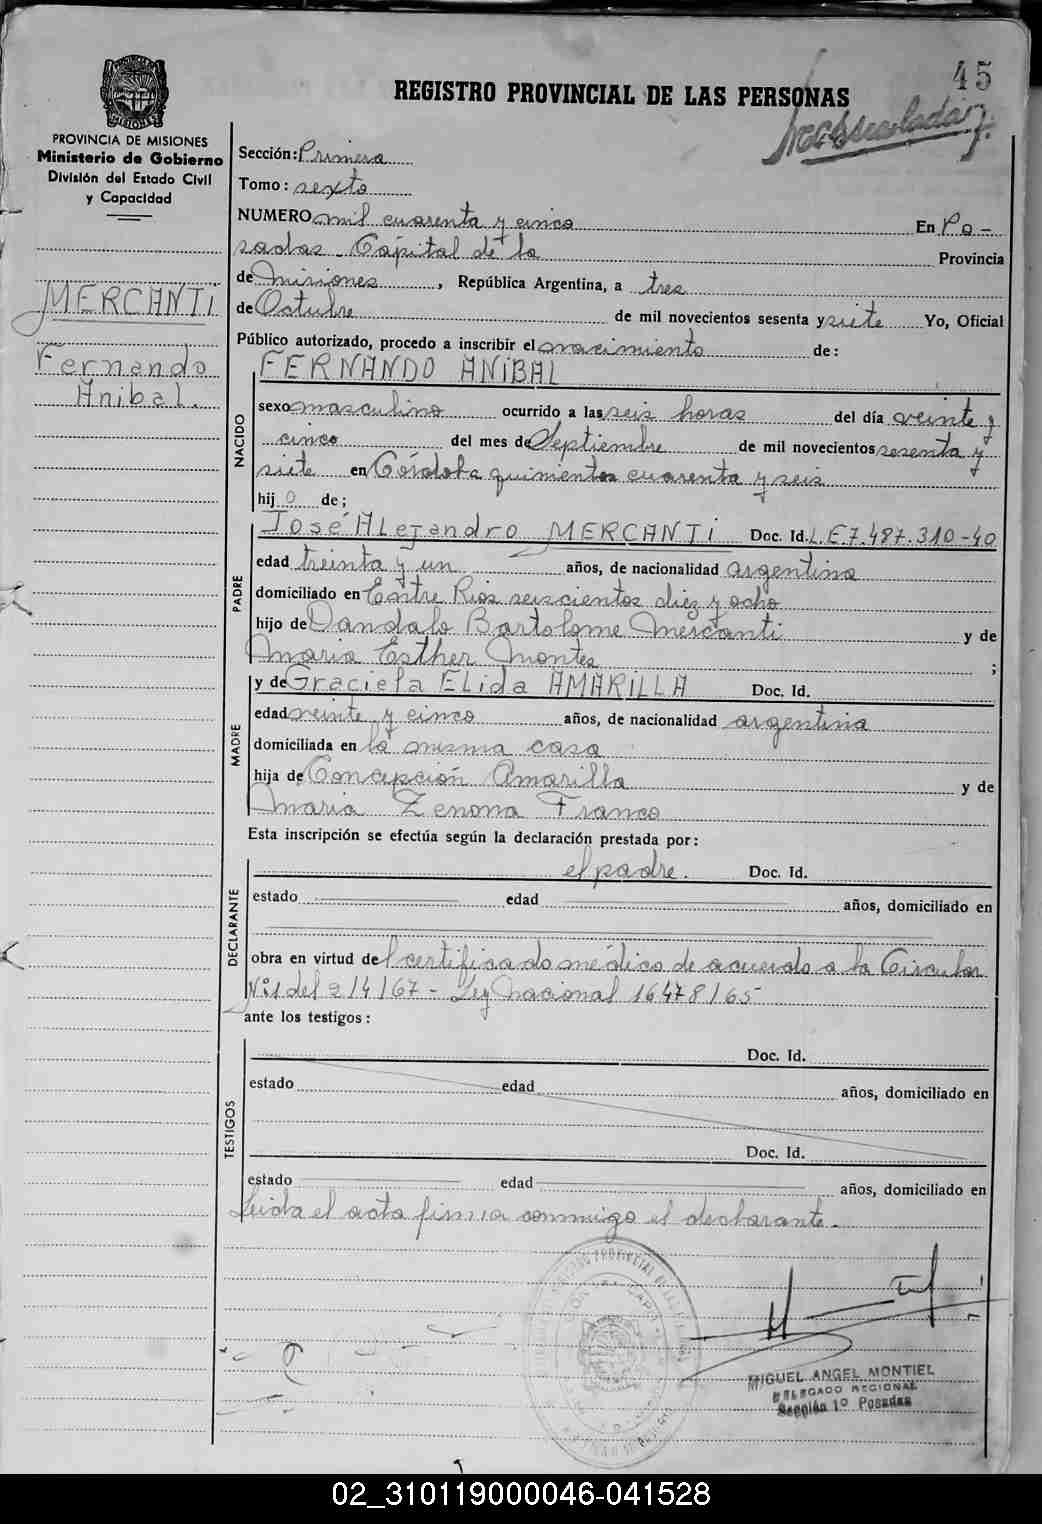 45
REGISTRO PROVINCIAL DE LAS PERSONAS
PROVINCIA DE MISIONES
Ministerio de Gobierno
División del Estado Civil
y Capacidad
MERCANTI
Fernando
Anibal.
Sección: Primera
Tomo: sexto
NUMERO mil cuarenta y cinco En Po-
sadas. Capital de la Provincia
de Misiones, República Argentina, a tres
de Octubre de mil novecientos sesenta y siete Yo, Oficial
Público autorizado, procedo a inscribir el nacimiento de:
FERNANDO ANIBAL
NACIDO
sexo masculino ocurrido a las seis horas del día veinte y
cinco del mes de Septiembre de mil novecientos sesenta y
siete en Córdoba quinientos cuarenta y seis
hijo de;
PADRE
José ALejandro MERCANTI Doc. Id. L.E 7.487.310-40
edad treinta y un años, de nacionalidad argentina
domiciliado en Entre Rios seiscientos diez y ocho
hijo de Dandalo Bartolome Mercanti y de
Maria Esther Montes ;
MADRE
y de Graciela ELida AMARILLA Doc. Id.
edad veinte y cinco años, de nacionalidad argentina
domiciliada en la misma casa
hija de Concepción Amarilla y de
Maria Zenona Franco
Esta inscripción se efectúa según la declaración prestada por:
DECLARANTE
el padre. Doc. Id.
estado edad años, domiciliado en
obra en virtud del certificado médico de acuerdo a la Circular
Nº 1 del 2/4/67 - Ley Nacional 16478/65
ante los testigos:
TESTIGOS
Doc. Id.
estado edad años, domiciliado en
Doc. Id.
estado edad años, domiciliado en
Leida el acta firma conmigo el declarante.
MIGUEL ANGEL MONTIEL
DELEGADO REGIONAL
Sección 1º Posadas
02_310119000046-041528